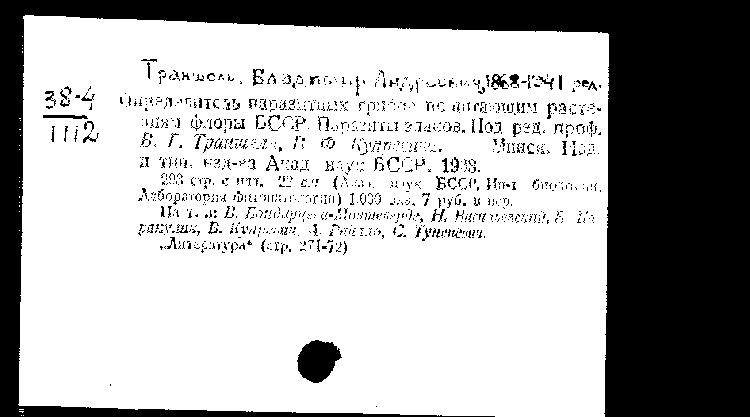 Траншель, Владимир Андреевич, 1868-1941 ред.
38-4
1112
Определитель паразитных грибов по питающим расте-
ниям флоры БССР. Паразиты злаков. Под ред. проф.
В. Г. Траншеля, В. Ф. Купревича. Минск. Изд.
и тип. изд-ва Акад. наук БССР. 1938.
293 стр. с илл. 22 см (Акад. наук БССР. Ин-т биологии.
Лаборатория фитопатологии) 1.000 экз. 7 руб. в пер.
На т. л: В. Бондарцева-Монтеверде, Н. Васильевский,
В. Купревич, А. Райлло, С. Тупеневич.
„Литература“ (стр. 271-72)